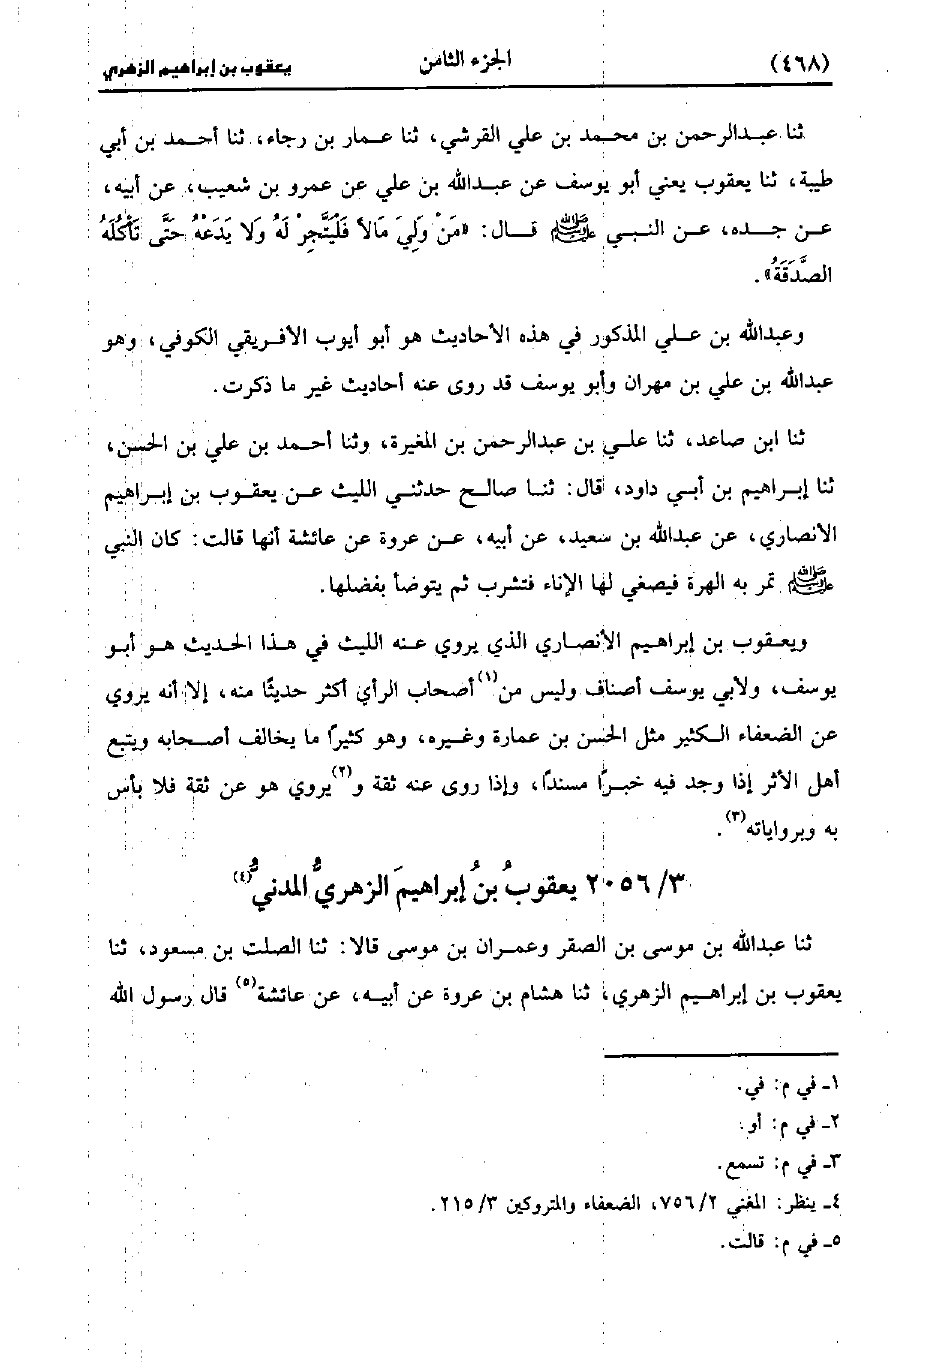 (٤٦٨) الجزء الثامن يعقوب بن إبراهيم الزهري
ثنا عبدالرحمن بن محمد بن علي القرشي، ثنا عمار بن رجاء، ثنا أحمد بن أبي
طيبة، ثنا يعقوب يعني أبو يوسف عن عبدالله بن علي عن عمرو بن شعيب، عن أبيه،
عن جده، عن النبي ﷺ قال: «مَنْ وَلِيَ مَالاً فَلْيَتَّجِرْ لَهُ وَلا يَدَعْهُ حَتَّى تَأْكُلَهُ
الصَّدَقَةُ».
وعبدالله بن علي المذكور في هذه الأحاديث هو أبو أيوب الأفريقي الكوفي، وهو
عبدالله بن علي بن مهران وأبو يوسف قد روى عنه أحاديث غير ما ذكرت.
ثنا ابن صاعد، ثنا علي بن عبدالرحمن بن المغيرة، وثنا أحمد بن علي بن الحسن،
ثنا إبراهيم بن أبي داود، قال: ثنا صالح حدثني الليث عن يعقوب بن إبراهيم
الأنصاري، عن عبدالله بن سعيد، عن أبيه، عن عروة عن عائشة أنها قالت: كان النبي
ﷺ تمر به الهرة فيصغي لها الإناء فتشرب ثم يتوضأ بفضلها.
ويعقوب بن إبراهيم الأنصاري الذي يروي عنه الليث في هذا الحديث هو أبو
يوسف، ولأبي يوسف أصناف وليس من(١) أصحاب الرأي أكثر حديثًا منه، إلا أنه يروي
عن الضعفاء الكثير مثل الحسن بن عمارة وغيره، وهو كثيرًا ما يخالف أصحابه ويتبع
أهل الأثر إذا وجد فيه خبرًا مسندًا، وإذا روى عنه ثقة و(٢)يروي هو عن ثقة فلا بأس
به وبرواياته(٣).
٢٠٥٦/٣ يعقوبُ بنُ إبراهيمَ الزهريُّ المدنيُّ(٤)
ثنا عبدالله بن موسى بن الصقر وعمران بن موسى قالا: ثنا الصلت بن مسعود، ثنا
يعقوب بن إبراهيم الزهري، ثنا هشام بن عروة عن أبيه، عن عائشة(٥) قال رسول الله
١- في م: في.
٢- في م: أو.
٣- في م: تسمع.
٤- ينظر: المغني ٧٥٦/٢، الضعفاء والمتروكين ٢١٥/٣.
٥- في م: قالت.